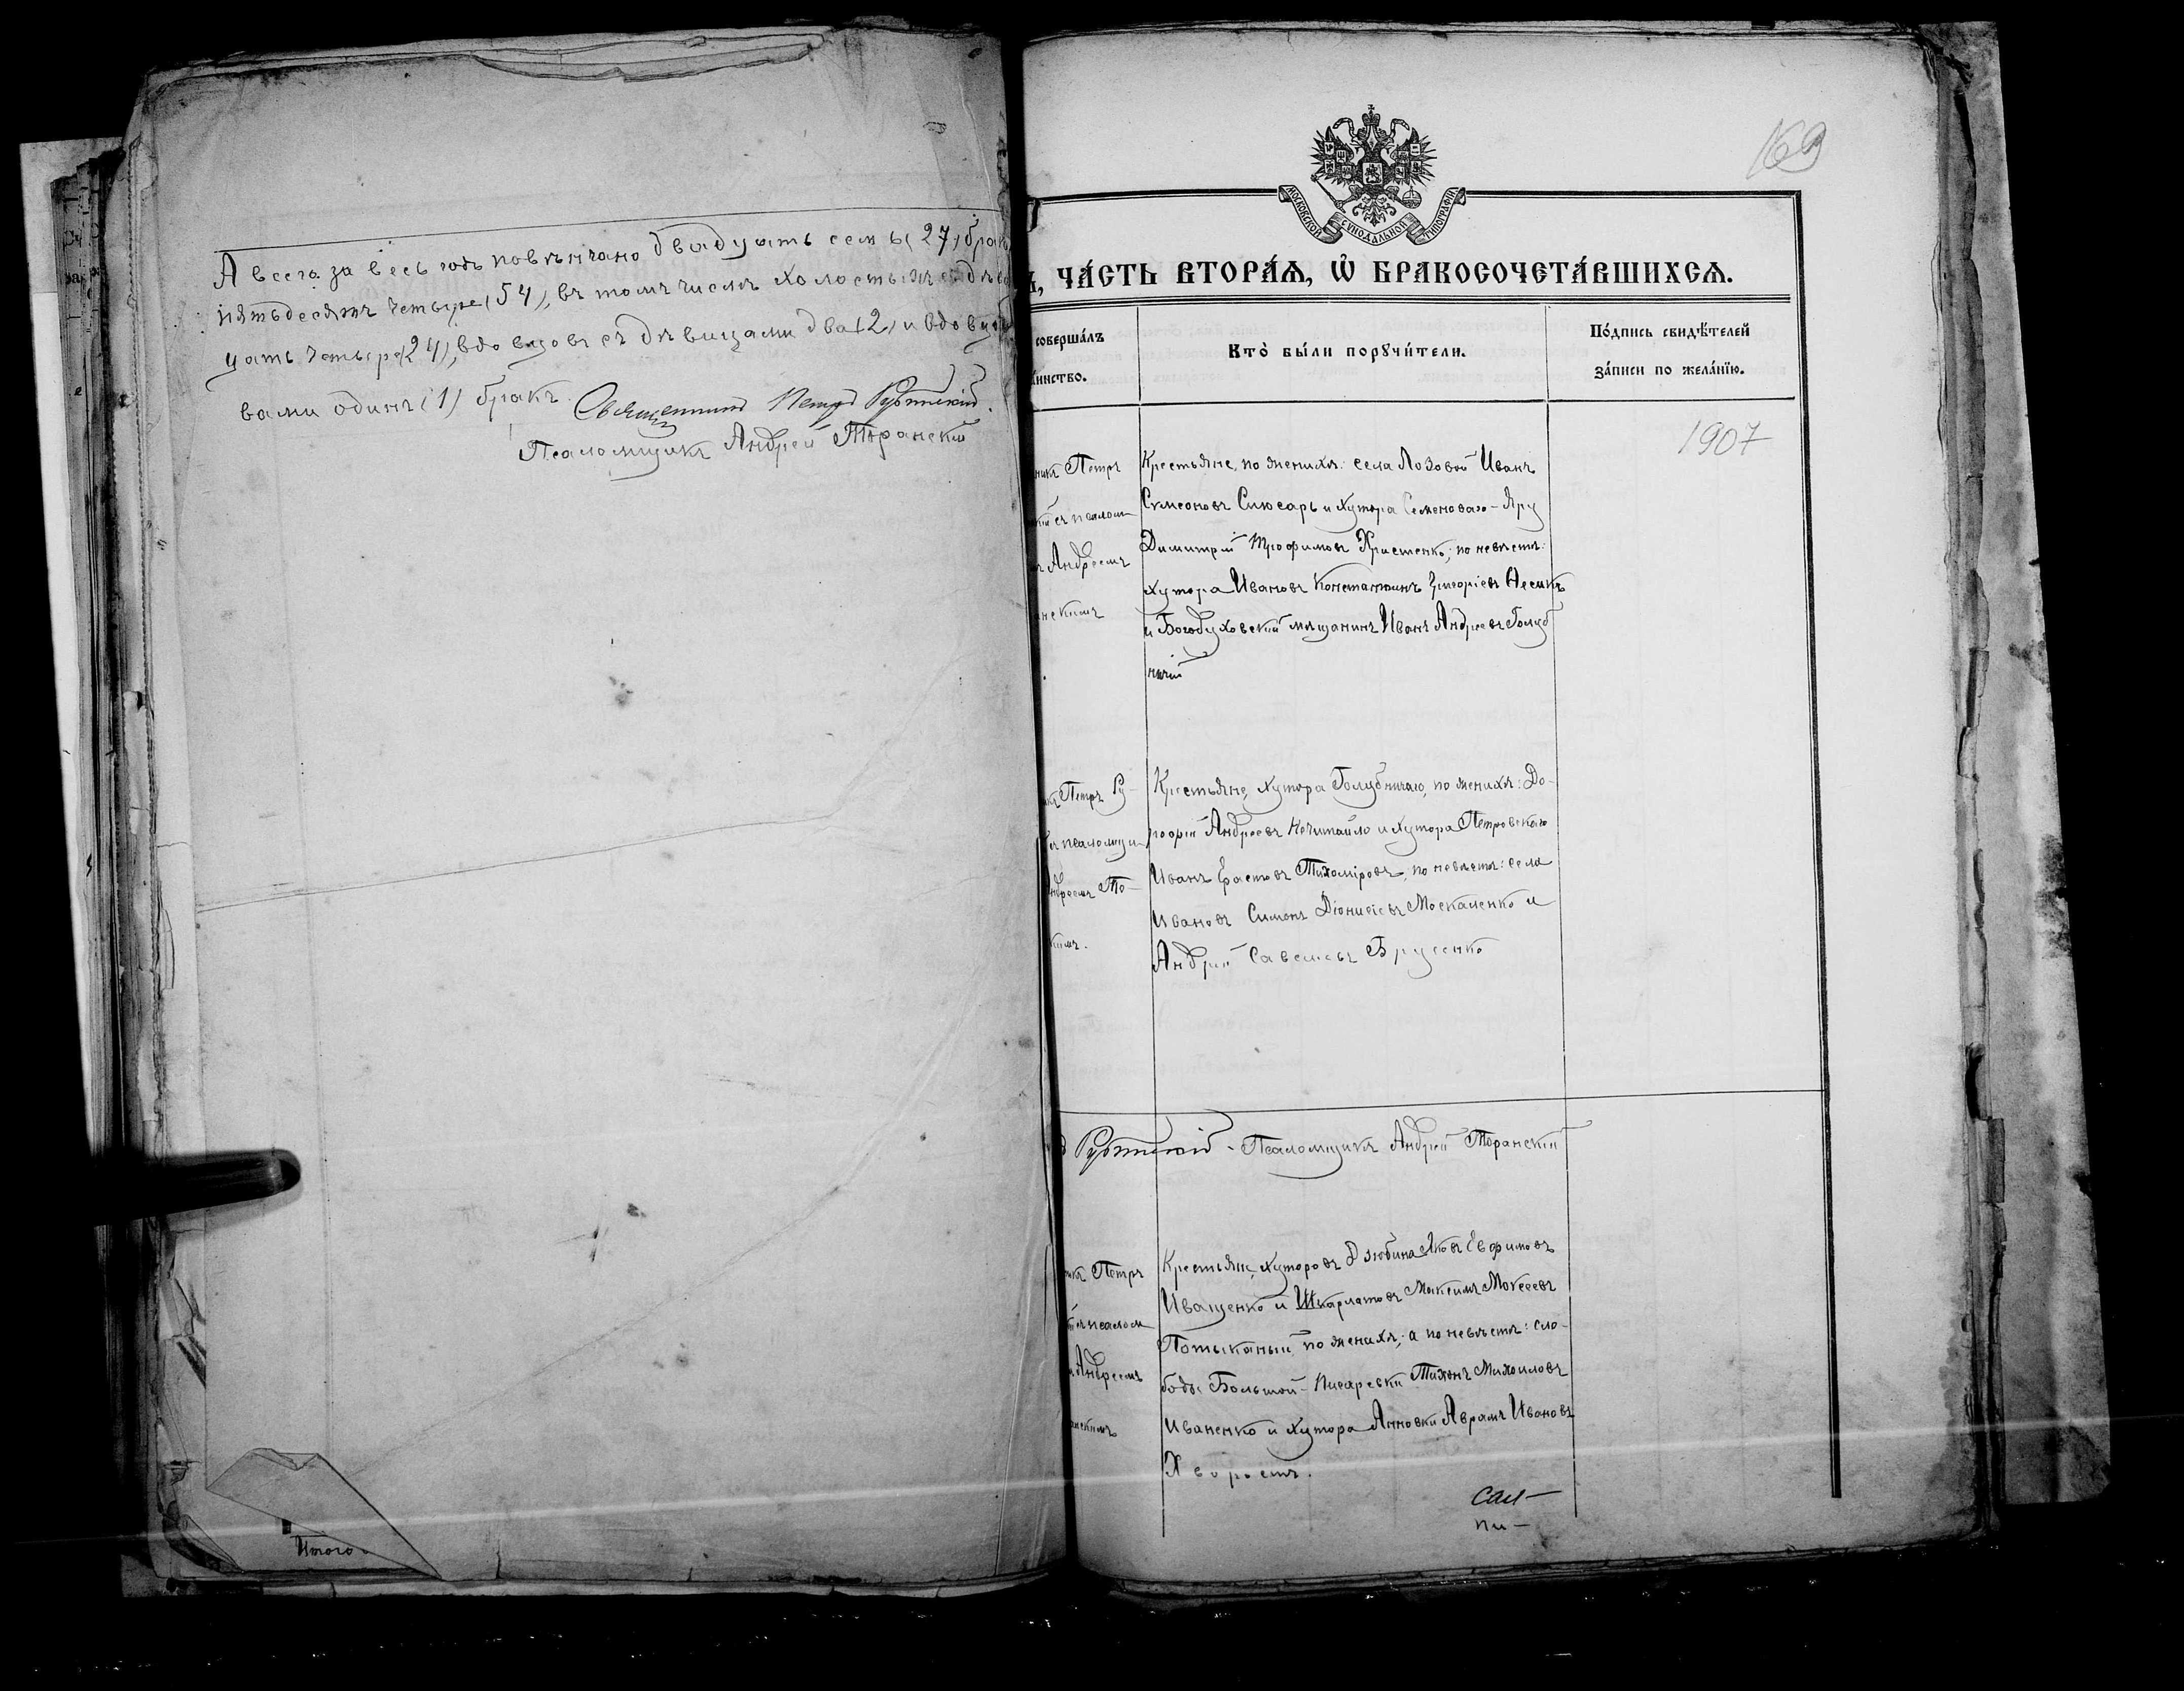 А всего за весь годъ повѣнчано двадцать семь (27) брак
пятьдесятъ четыре (54), въ томъ числѣ холостыхъ съ дѣв
цать четыре (24), вдовцовъ съ дѣвицами два (2) и вдовц
вами одинъ (1) бракъ.
Священникъ Петръ
Псаломщикъ Андрей Торанскій
Итого
169
МОСКОВСКОЙ СѴНОДАЛЬНОЙ ТИПОГРАФІИ
ЧА́СТЬ ВТОРА́Я, Ѡ҆ БРАКОСОЧЕТА́ВШИХСЯ.
соверша́лъ
Кто̀ бы́ли порꙋчи́тели.
По́дпись свидѣ́телей
за́писи по жела́нїю.
1907
Петръ
Андреемъ
Крестьяне, по женихѣ: села Лозовой Иванъ
Симеоновъ Слюсарь и хутора Семенова-Яру
Димитрій Трофимовъ Христенко; по невѣстѣ:
хутора Ивановъ Константинъ Григоріевъ Несикъ
и Богодуховскій мѣщанинъ Иванъ Андреевъ Голуб
ничій
Петръ Ру-
псаломщи
Андреемъ То-
Крестьяне, хутора Голубничаго, по женихѣ: До-
роѳей Андреевъ Нечитайло и хутора Петровскаго
Иванъ Ерастовъ Тихоміровъ, по невѣстѣ: села
Ивановъ Симонъ Діонисіевъ Москаленко и
Андрей Савельевъ Брусенко
Псаломщикъ Андрей Торанскій
Петръ
псалом
Андреемъ
Крестьяне, хуторовъ Дзюбина Яковъ Евфимовъ
Иващенко и Шкарлатовъ Максимъ Мокеевъ
Потыканый по женихѣ; а по невѣстѣ: сло-
боды Большой-Писаревки Тихонъ Михаиловъ
Иваненко и хутора Анновки Аврамъ Ивановъ
Хворостъ.